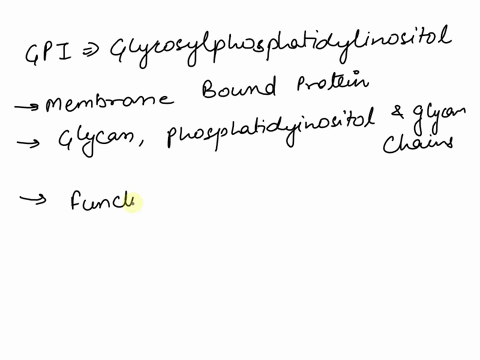 GPI ⇒ Glycosylphosphatidylinositol
→ Membrane Bound Protein
→ Glycan, phosphatidyinositol & glycan Chains
→ Fund